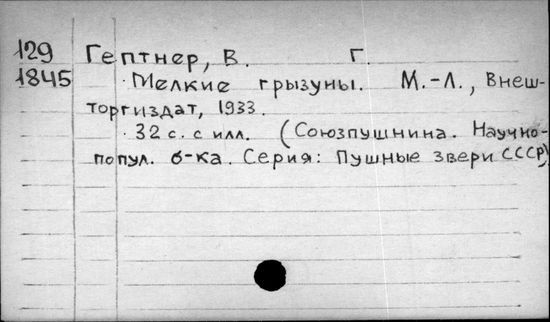 129 Гептнер, В. Г.
1845 Мелкие грызуны. М.-Л., Внеш-
торгиздат, 1933.
32 с. с илл. (Союзпушнина. Научно-
попул. б-ка. Серия: Пушные звери СССР)